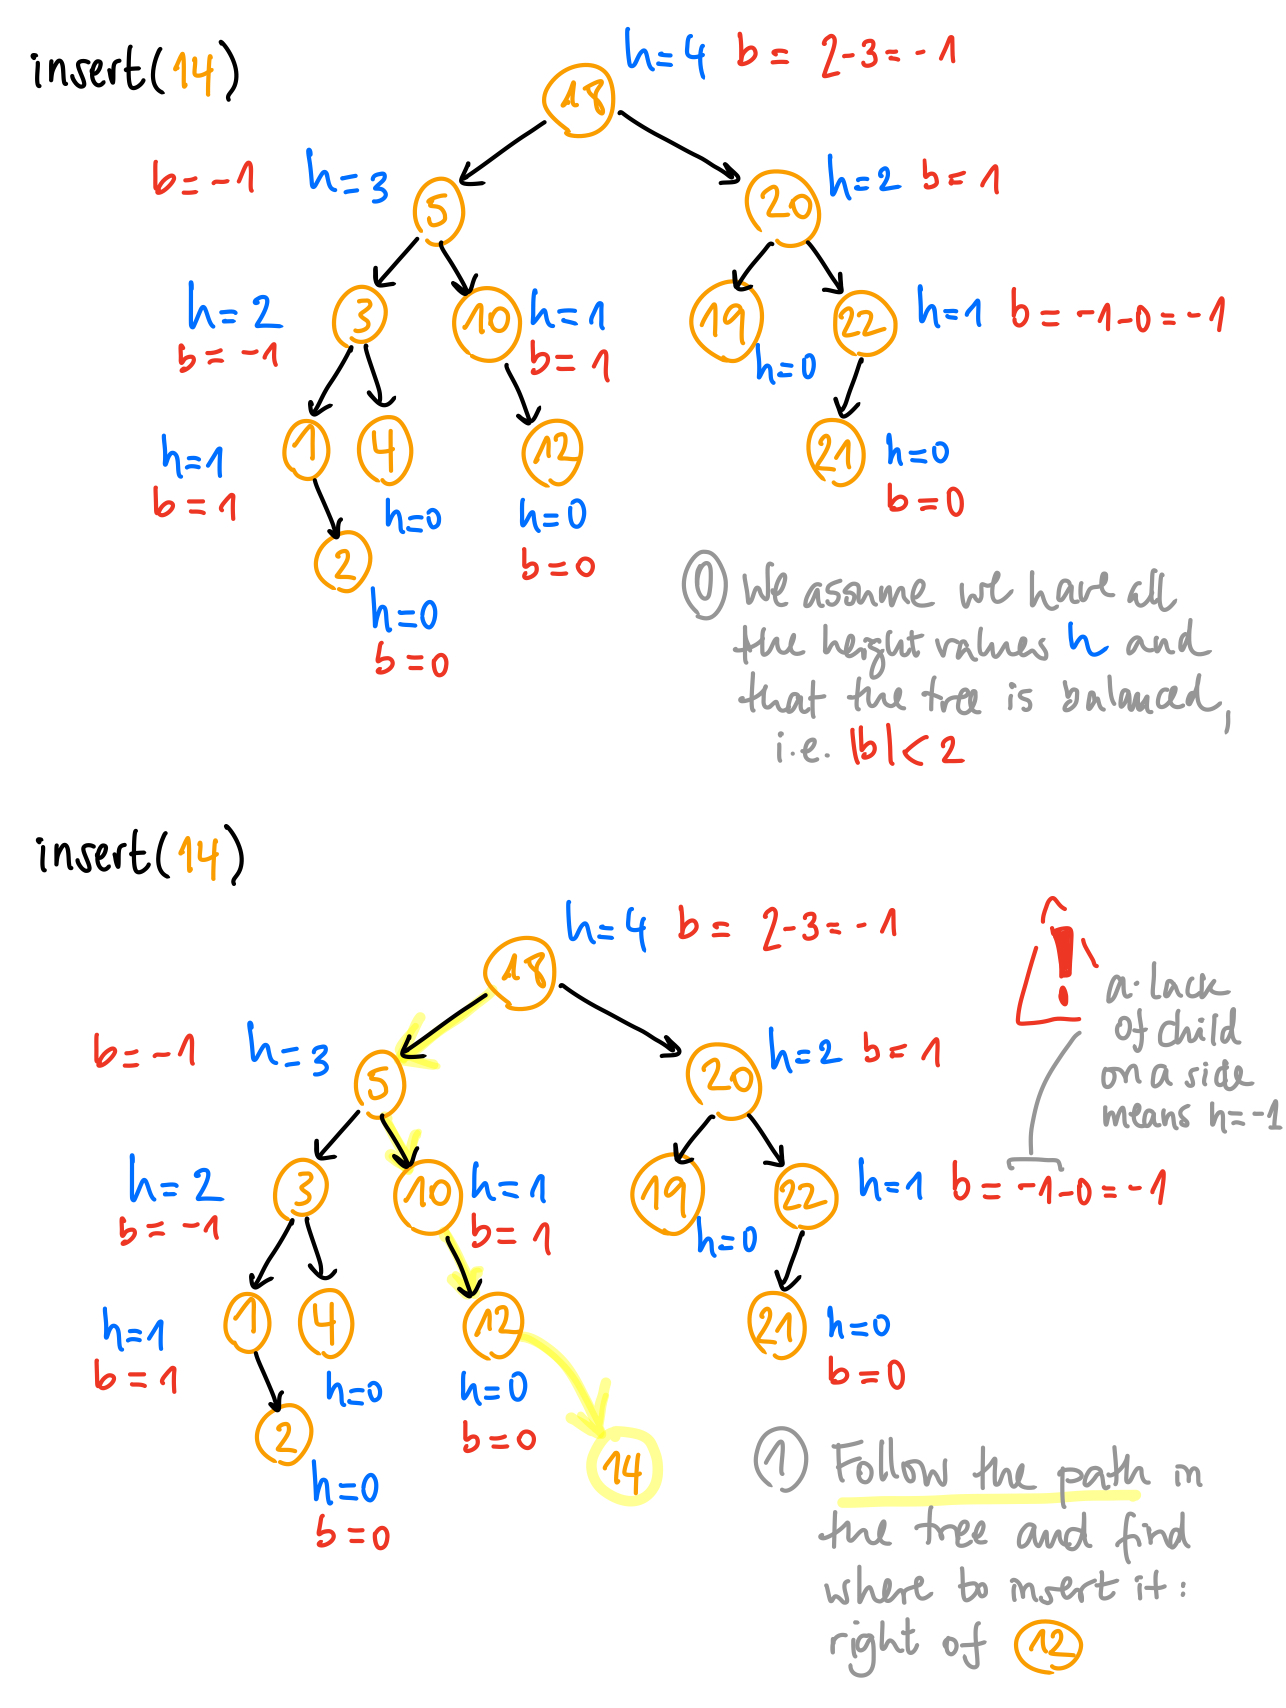 insert(14)
h=4 b= 2-3=-1
18
b=-1 h=3
5
20
h=2 b=1
h=2
b=-1
3
10
h=1
b=1
19
h=0
22
h=1 b=-1-0=-1
h=1
b=1
1
4
h=0
12
h=0
b=0
21
h=0
b=0
2
h=0
b=0
0 We assume we have all
the height values h and
that the tree is balanced,
i.e. |b|<2
insert(14)
h=4 b= 2-3=-1
18
!
a lack
of child
on a side
means h=-1
b=-1 h=3
5
20
h=2 b=1
h=2
b=-1
3
10
h=1
b=1
19
h=0
22
h=1 b=-1-0=-1
h=1
b=1
1
4
h=0
12
h=0
b=0
21
h=0
b=0
2
h=0
b=0
14
1 Follow the path in
the tree and find
where to insert it:
right of 12